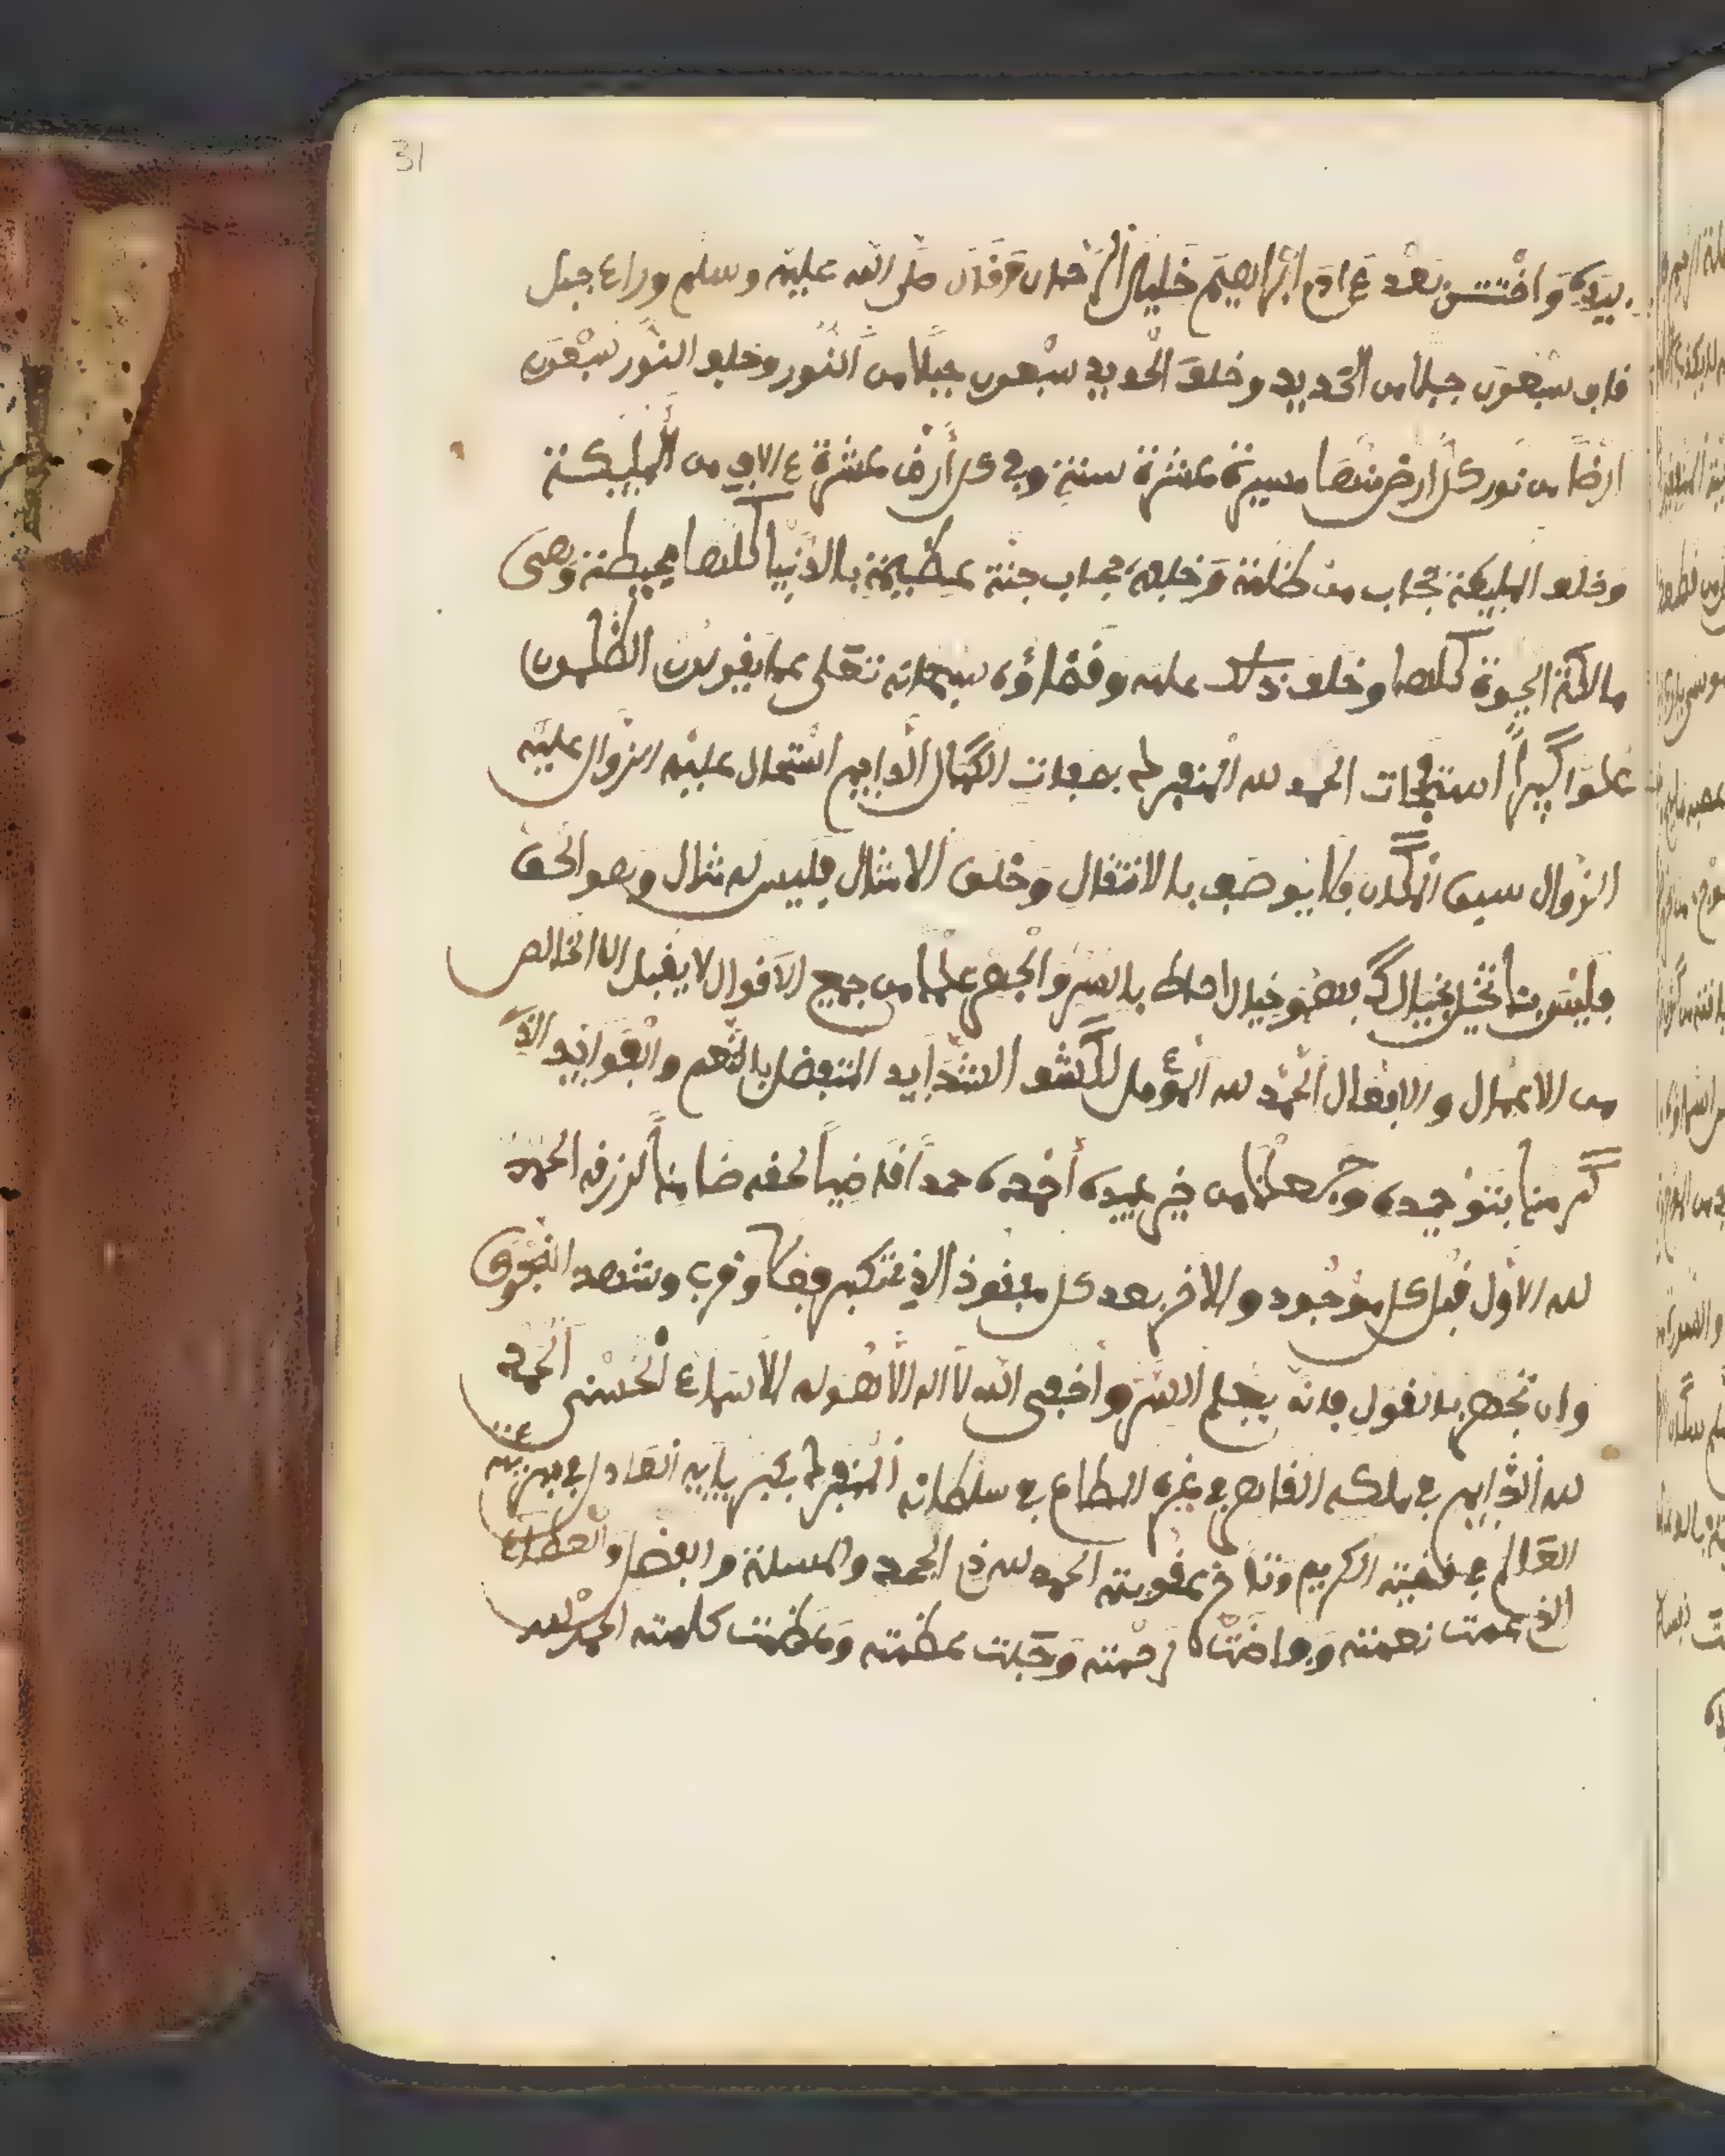 31
بيده واختتن بعد ءادم ابراهيم خليل الرحمان وقال صلى الله عليه وسلم وراء جبل
قاف سبعون جبلا من الحديد وخلف الحديد سبعون جبلا من النور وخلف النور سبعون
ارضا من نور كل ارض منها مسيرة عشرة سنة وفي كل أرض عشرة ءالاف من المليكة
وخلف المليكة حجاب من ظلمة وخلفه حجاب جنة عظيمة بالدنيا كلها محيطة وهي
مالكة الحيوة كلها وخلف ذلك علمه وقضاؤه سبحانه تعلى عما يقولون الظلمون
علوا كبيرا استفتحات الحمد لله المنفرد بصفات الكمال الدايم استحال عليه الزوال عليه
الزوال سبق المكان فلا يوصف بالانتقال وخلق الامثال فليس له مثال وهو الحق
فليس بمتخيل بخيال بعضو خيال احاط بالسر والجهر علما من جميع الاقوال لا يقبل الا الخالص
من الاعمال والافعال الحمد لله المؤمل لكشف الشدايد المتفضل بالنعم والفوايد الذي
كرمنا بتوحيده وجعلنا من خير عبيده أحمده حمدا قاضيا لحقه ضامنا لرزقه الحمد
لله الاول قبل كل موجود والاخر بعد كل مفقود الذي وقرب وشهد النجوى
وان تجهر بالقول فانه يعلم السر وأخفى الله لا اله الا هو له الاسماء الحسنى الحمد
لله الدايم في ملكه القاهر في عزه المطاع في سلطانه المنفرد بكبريايه العادل في بريته
العالم في قضيته الكريم في عقوبته الحمد لله ذي الحمد والفضل والعطاء
الذي عمت نعمته وفاضت رحمته وجلت عظمته وعظمت كلمته الحمد لله